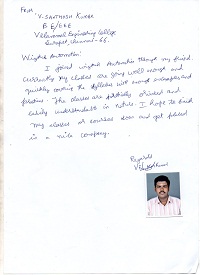 From,
V. Santhosh Kumar
B.E/EEE
Velammal Engineering College
Surapet, Chennai - 66.
Wingtek Automation:
I joined wingtek Automation through my friend.
Currently my classes are going well enough and
quickly covering the syllabus with enough examples and
The classes are practically oriented and
easily understandable in nature. I hope to finish
my classes or courses soon and get placed
in a nice company.
Regards
V. Santhosh Kumar